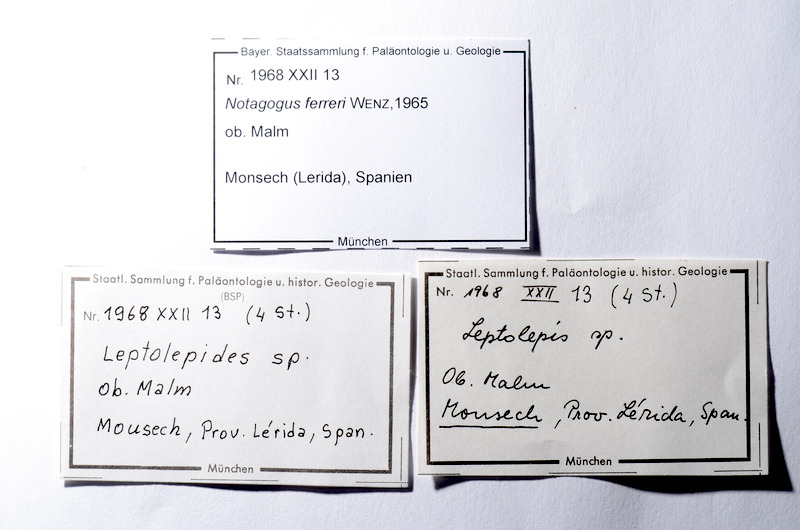 Bayer. Staatssammlung f. Paläontologie u. Geologie
Nr. 1968 XXII 13
Notagogus ferreri WENZ,1965
ob. Malm
Monsech (Lerida), Spanien
München
Staatl. Sammlung f. Paläontologie u. histor. Geologie
(BSP)
Nr. 1968 XXII 13 (4 St.)
Leptolepides sp.
Ob. Malm
Mousech, Prov. Lérida, Span.
München
Staatl. Sammlung f. Paläontologie u. histor. Geologie
Nr. 1968 XXII 13 (4 St.)
Leptolepis sp.
Ob. Malm
Monsech, Prov. Lérida, Span.
München